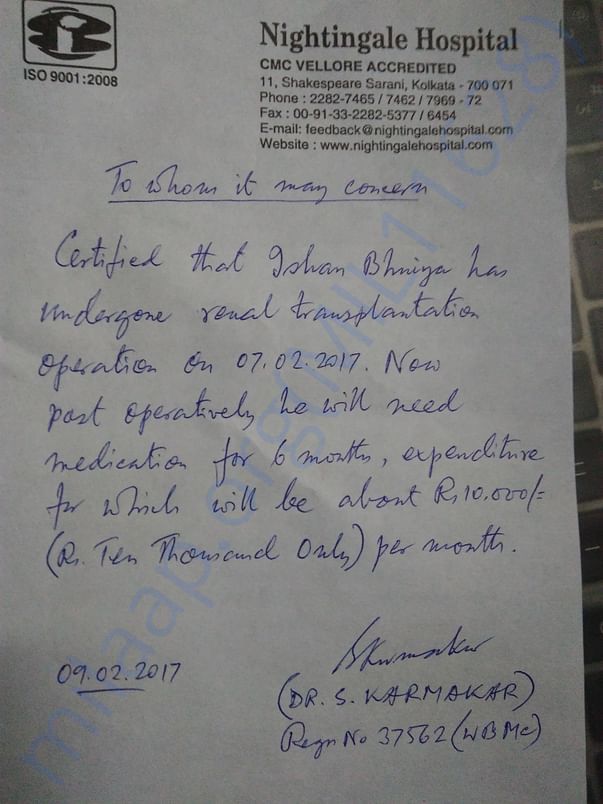 ISO 9001:2008
Nightingale Hospital
CMC VELLORE ACCREDITED
11, Shakespeare Sarani, Kolkata - 700 071
Phone : 2282-7465 / 7462 / 7969 - 72
Fax : 00-91-33-2282-5377 / 6454
E-mail: feedback@nightingalehospital.com
Website : www.nightingalehospital.com
To whom it may concern
Certified that Ishan Bhniya has
undergone renal transplantation
operation on 07.02.2017. Now
post operatively he will need
medication for 6 months, expenditure
for which will be about Rs 10.000/=
(Rs. Ten Thousand Only) per month.
09.02.2017
(DR. S. KARMAKAR)
Regn No 37562 (WBMC)